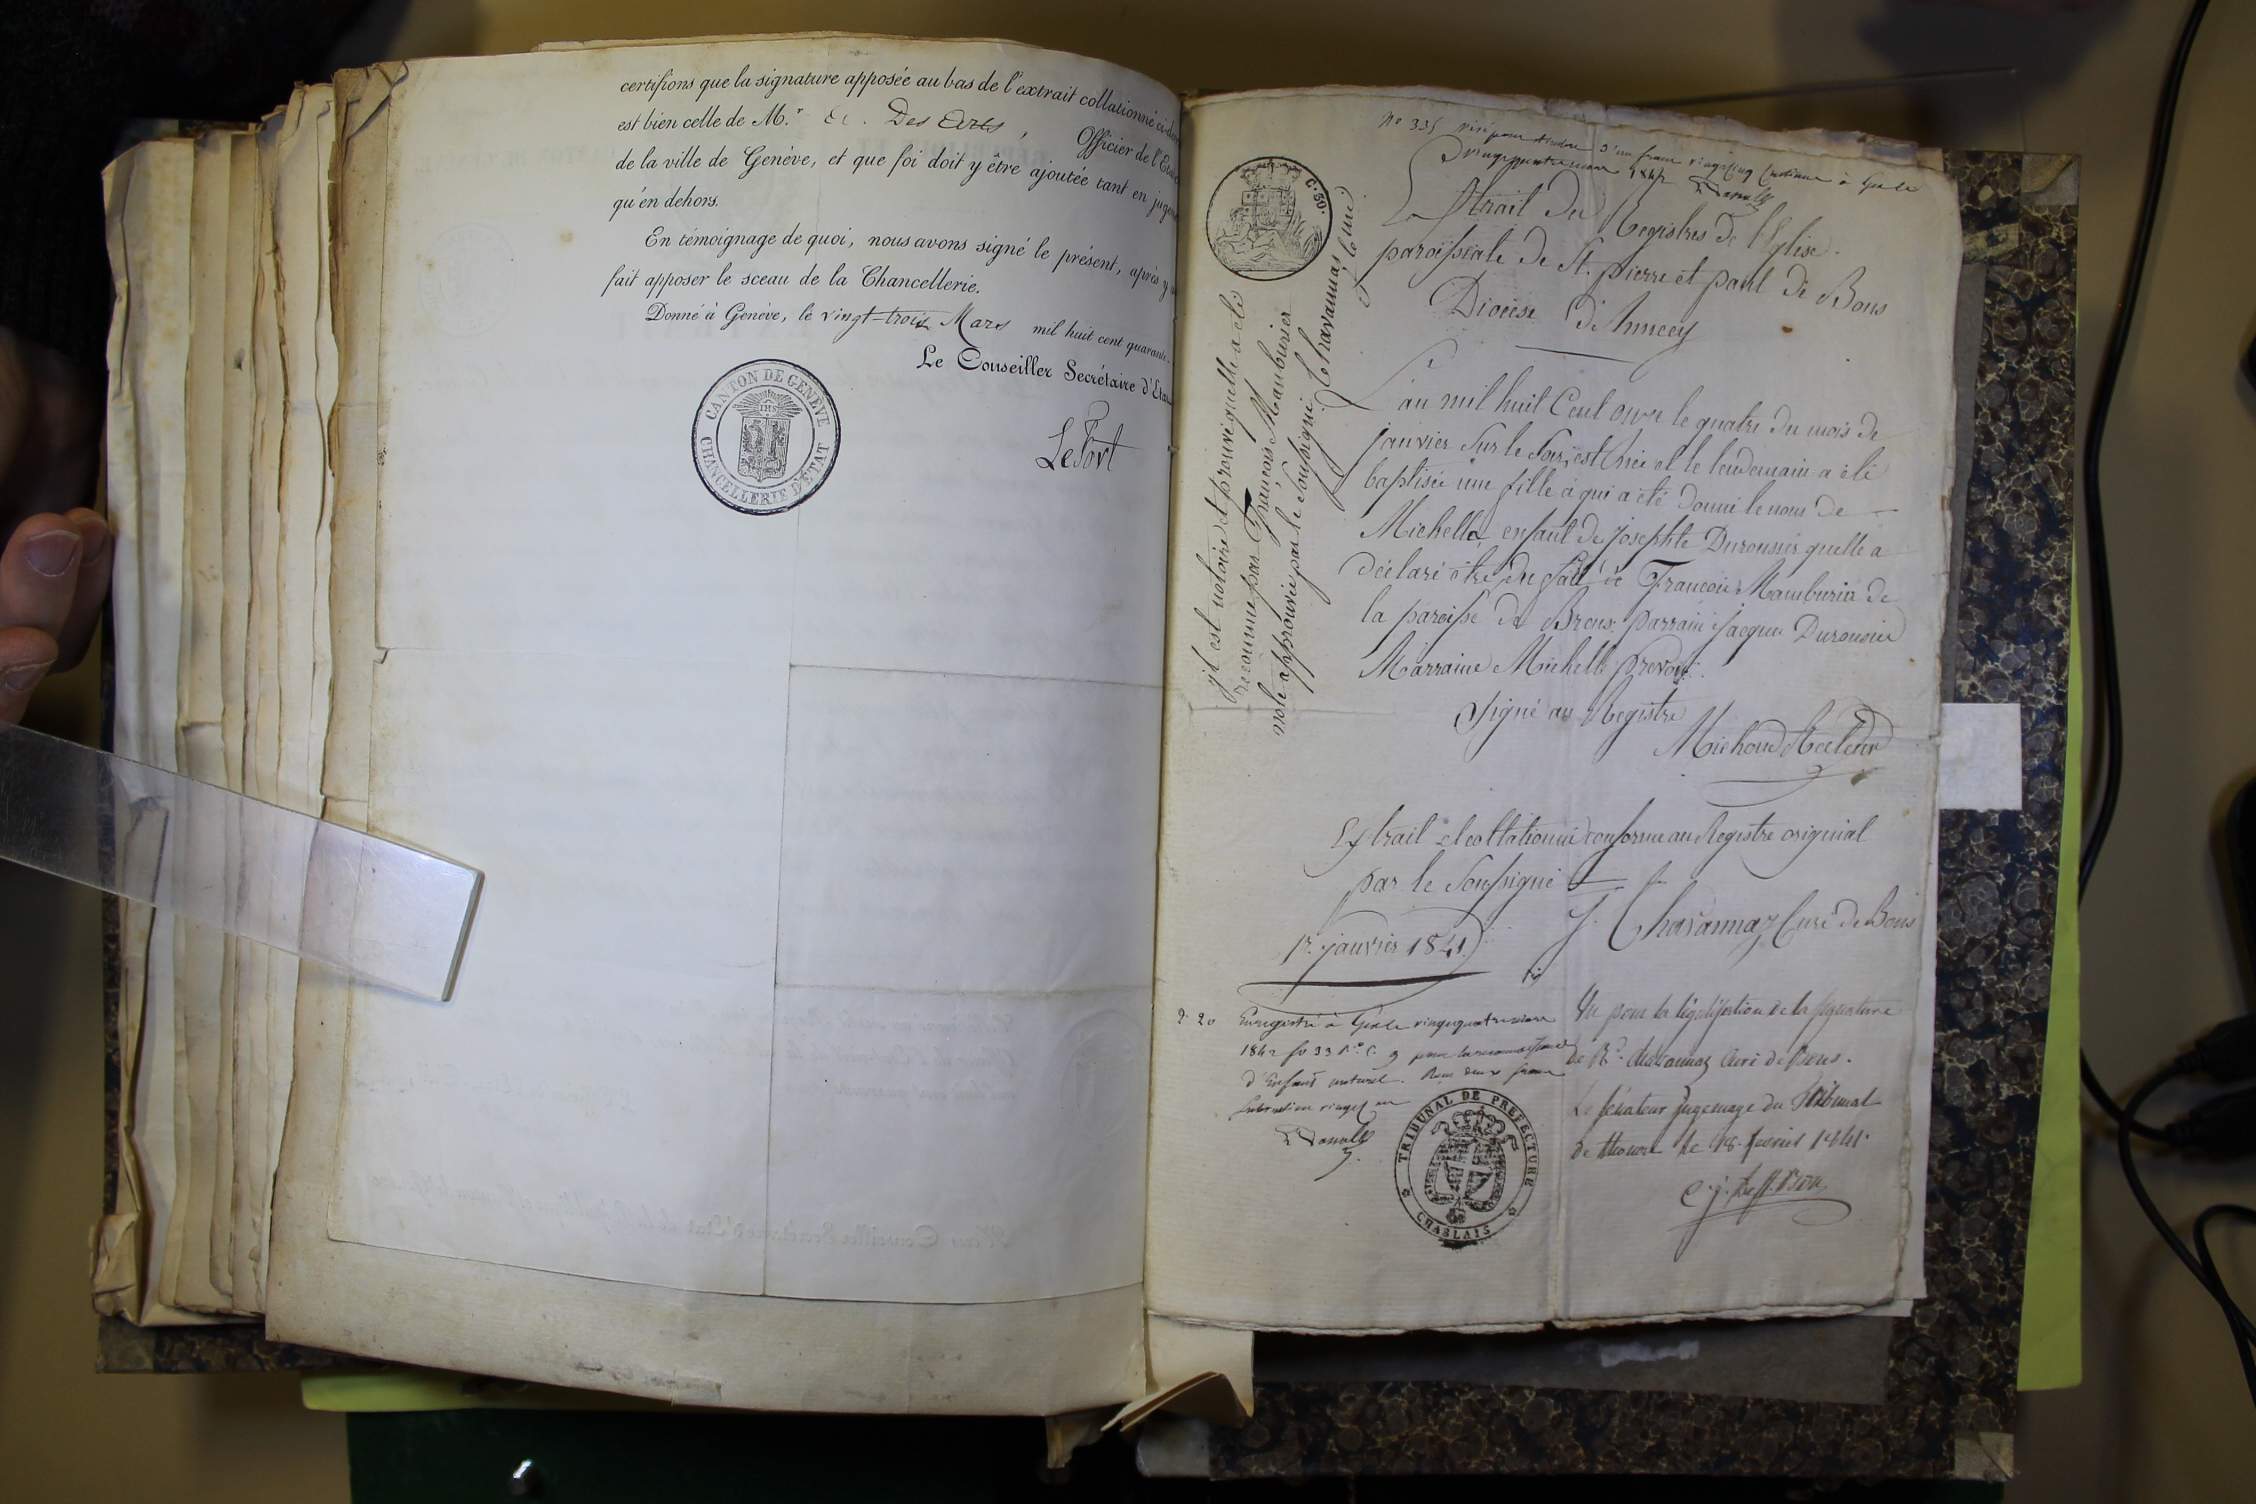 certifions que la signature apposée au bas de l'extrait collationné
est bien celle de M.r Des Arts, Officier de l'Etat
de la ville de Genève, et que foi doit y être ajoutée tant en
qu'en dehors.
En témoignage de quoi, nous avons signé le présent, après y
fait apposer le sceau de la Chancellerie.
Donné à Genève, le vingt-trois Mars mil huit cent quarante
Le Conseiller Secrétaire d'Etat
CANTON DE GENEVE
CHANCELLERIE D'ÉTAT
IHS
LeFort
No 335 visé pour timbre d'un franc vingt cinq centimes à
vingt quatre 1842
C. 50.
Extrait du Registres de l'Eglise
paroissiale de St. pierre et paul de Bons
Diocèse d'Annecy
L'an mil huit Cent onze le quatre du mois de
janvier sur le soir, est née et le lendemain a été
baptisée une fille à qui a été donné le nom de
Michelle, enfant de josephte Durousier quelle a
déclaré être du fait de François Mamburier de
la paroisse de Brens: parrain jacques Durousier
Marraine Michelle prevost.
Signé au Registre
Michoud Recteur
y'l est notoire et prouvé quelle a été
reconnue par François Mamburier
note approuvée par le soussigné. J. Chavannaz
Curé
Extrait et collationné conforme au Registre original
par le soussigné
J. Chavannaz Curé de Bons
17. janvier 1841.
Enregistré à vingt quatre
1842 fo 33 Ro. C. 9 pour la reconnaissance
d'Enfant naturel. Reçu deux francs
subvention vingt
Vu pour la légalisation de la signature
de Rd. Chavannaz Curé de Bons.
Le sénateur jugemage du Tribunal
de thonon le 18 fevrier 1841.
TRIBUNAL DE PREFECTURE
CHABLAIS